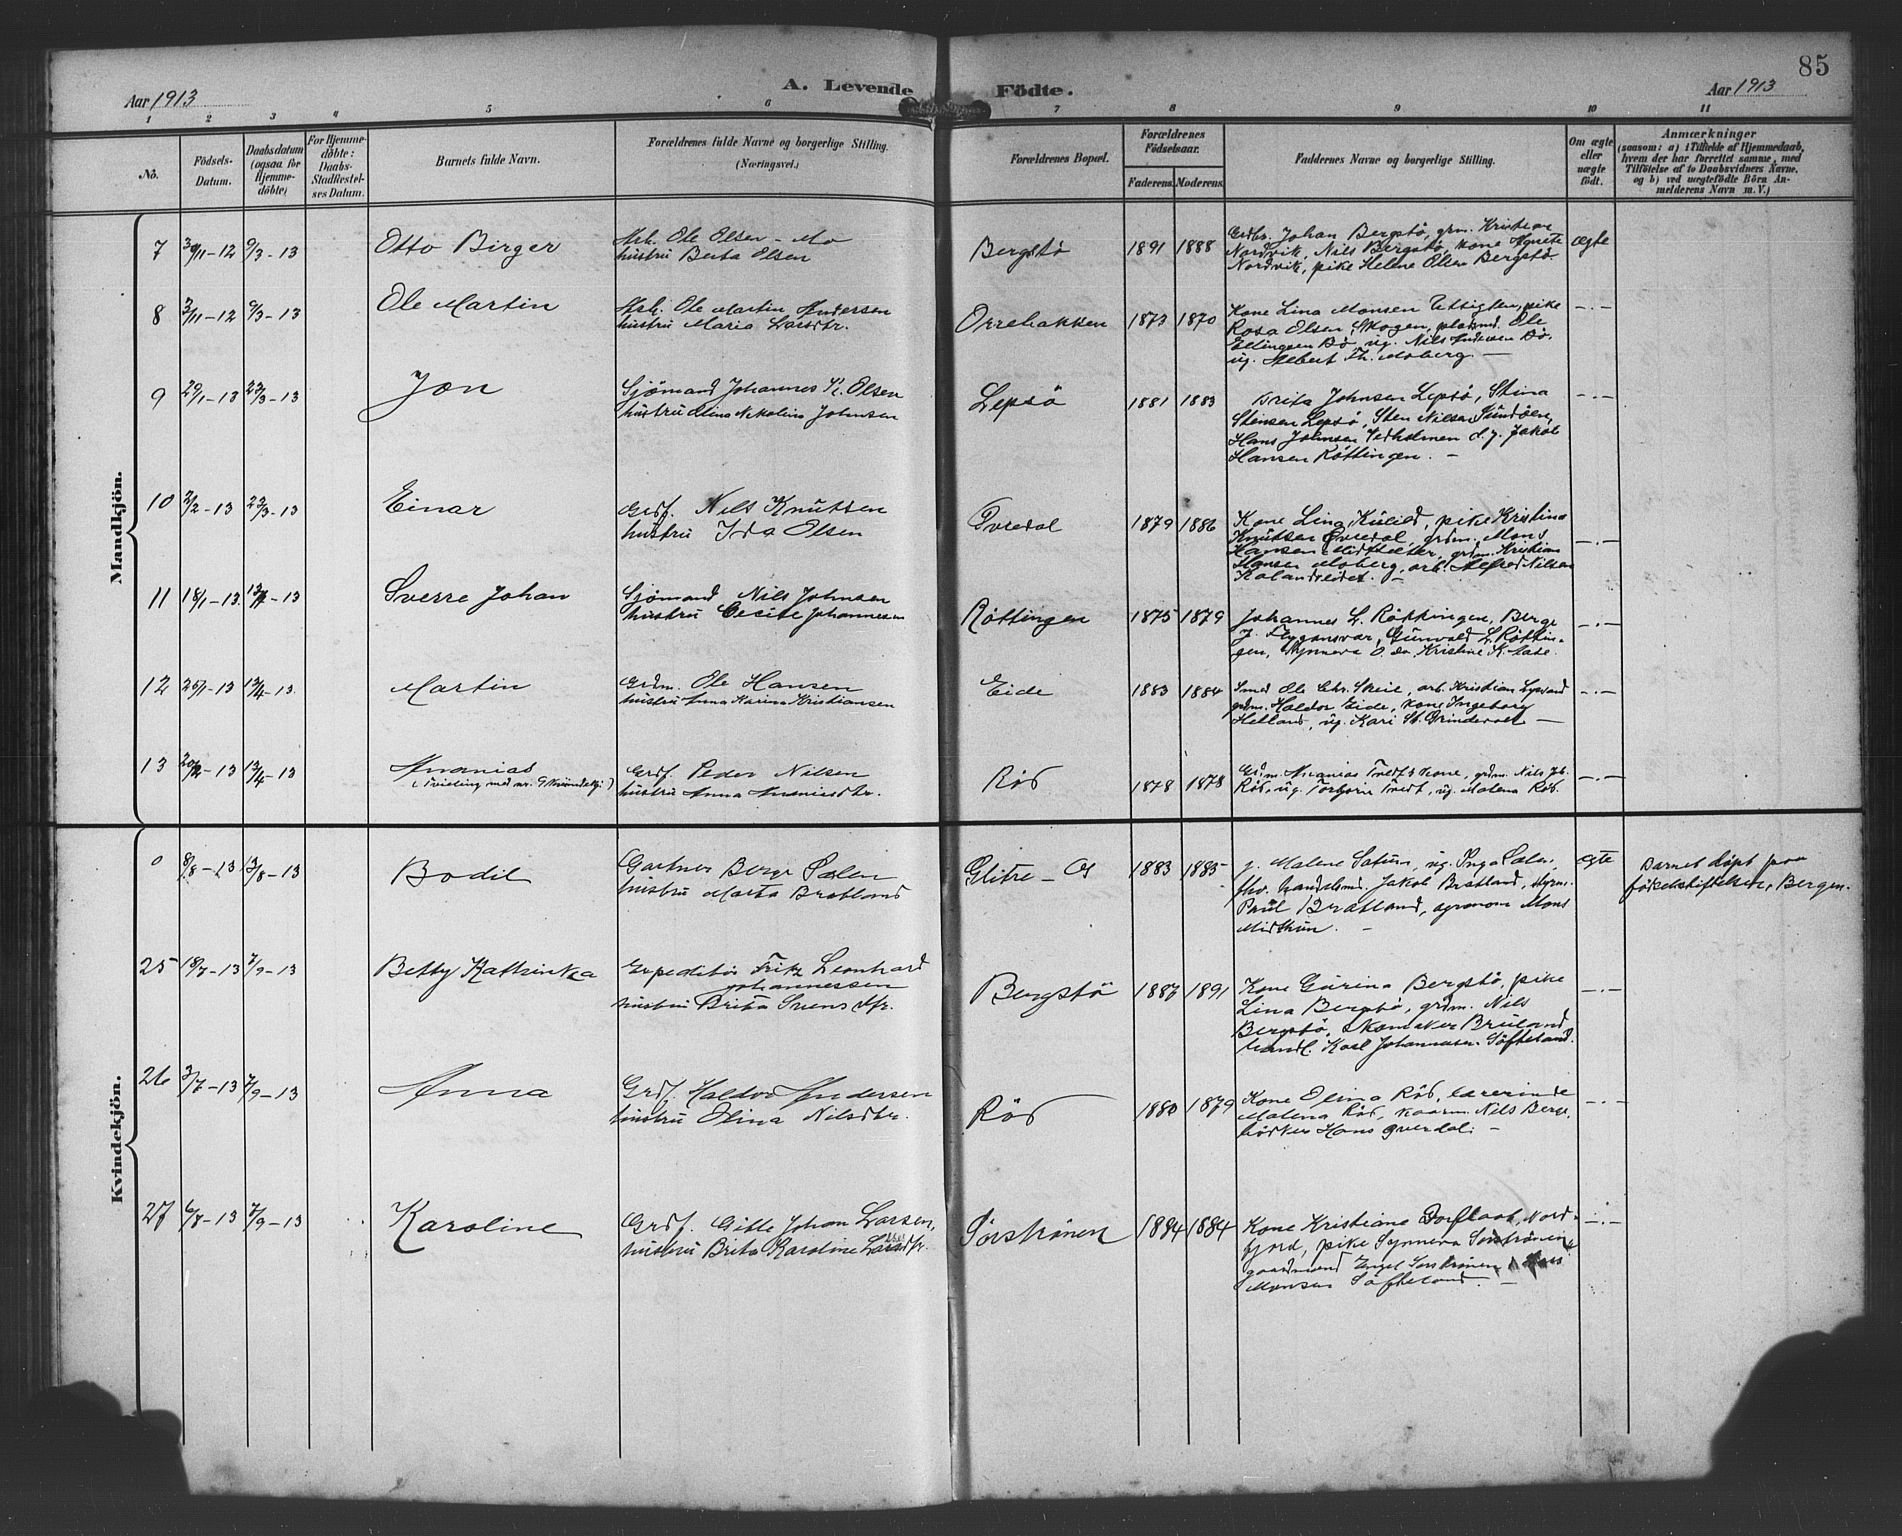 85
Aar 1913
A. Levende Födte.
Aar 1913
1 2 3 4 5 6 7 8 9 10 11
No.
Födsels-
Datum.
Daabsdatum
(ogsaa for
Hjemme-
döbte)
For Hjemme-
döbte:
Daabs-
Stadfæstel-
ses Datum.
Barnets fulde Navn.
Forældrenes fulde Navne og borgerlige Stilling.
(Næringsvei.)
Forældrenes Bopæl.
Forældrenes
Födselsaar.
Faderens. Moderens.
Faddernes Navne og borgerlige Stilling.
Om ægte
eller
uægte
födt.
Anmærkninger
(saasom: a) i Tilfælde af Hjemmedaab,
hvem der har forrettet samme, med
Tilföielse af to Daabsvidners Navne,
og b) ved uægtefödte Börn An-
melderens Navn m. V.)
Mandkjön.
7 30/11-12 9/3-13 Otto Birger
Arb. Ole Olsen - Mo
hustru Berta Olsen
Bergstö 1891 1888
Johan Bergstö, grm. Kristian
Nordvik, Nils Bergstö, kone Agnete
Nordvik, pike Helene Olsen Bergstö
ægte
8 3/11-12 9/3-13 Ole Martin
Arb. Ole Martin Andersen
hustru Maria Larsdtr.
Orrebakken 1873 1870
Kone Lina Monsen pike
Rosa Olsen Skogen, pladsmd. Ole
Ellingsen Bö, ug. Nils Andersen Bö,
ug. Albert Th. Moberg -
-.-
9 29/1-13 23/3-13 Jon
Sjömand Johannes K. Olsen
hustru Nikolina Johnsen
Lepsö 1881 1883
Brita Johnsen Lepsö, Stina
Stensen Lepsö, Sten Nilsen Sundöen,
Hans Johnsen Vedholmen d.y. Jakob
Hansen Röttingen. -
-.-
10 2/2-13 23/3-13 Einar
Grdf. Nils Knutsen
hustru Ida Olsen
Øvredal 1879 1886
Kone Lina Kulild, pike Kristina
Knutsen Øvredal, grdm. Mons
Hansen Midtsæter, grdm. Kristian
Hansen Moberg, arb. Alfred Nilsen
Kalandseidet. -
-.-
11 18/1-13 13/4-13 Sverre Johan
Sjömand Nils Johnsen
hustru Cecilie Johannesen
Röttingen 1875 1879
Johannes L. Röttingen, Berge
J. Flygansvær, Gunvald L. Röttin-
gen, Synneva O. do, Kristine K. Aase
-.-
12 25/1-13 13/4-13 Martin
Grdm. Ole Hansen
hustru Anna Karina Kristiansen
Eide 1883 1884
Smed Ole Chr. Skeie, arb. Kristian Lysand
grdm. Haldor Eide, kone Ingeborg
Hetland, ug. Kari St. Grindevoll -
-.-
13 20/2-13 13/4-13 Ananias
(Tvilling med nr. 9 kvindekj.)
Grdf. Peder Nilsen
hustru Anna Ananiasdtr.
Röd 1878 1878
Grdm. Ananias Tvedt & kone, grdm. Nils Joh.
Röd, ug. Torbjörn Tvedt, ug. Malena Röd
-.-
Kvindekjön.
0 8/8-13 13/8-13 Bodil
Gartner Berge Sælen
hustru Marta Bratland
Glitre - Os 1883 1885
Malene ug. Inga Sælen,
fhv. handelsmd. Jakob Bratland,
Paul Bratland, agronom Mons
Midthun. -
ægte
Barnet döpt paa
födselsstiftelsen, Bergen.
25 18/7-13 7/9-13 Betty Kathinka
Expeditör Fritz Leonhard
Johannessen
hustru Brita Svensdtr.
Bergstö 1887 1891
Kone Gurina Bergstö, pike
Lina Bergstö, grdm. Nils
Bergstö, skomaker Bruland
handl. Karl Johannesen Söfteland.
-.-
26 3/7-13 7/9-13 Anna
Grdf. Haldor Andersen
hustru Olina Nilsdtr.
Röd 1880 1879
Kone Olina Röd, lærerinde
Malena Röd, kaarm. Nils Berge,
bödker Hans Øvredal. -
-.-
27 6/8-13 7/9-13 Karoline
Grdf. Gitle Johan Larsen,
hustru Brita Karoline Larsdtr.
Sörströnen 1884 1884
Kone Kristiane Nord-
fjord, pike Synneva Sörströnen
gaardmand Engel Sörströnen
Monsen Söfteland. -
-.-